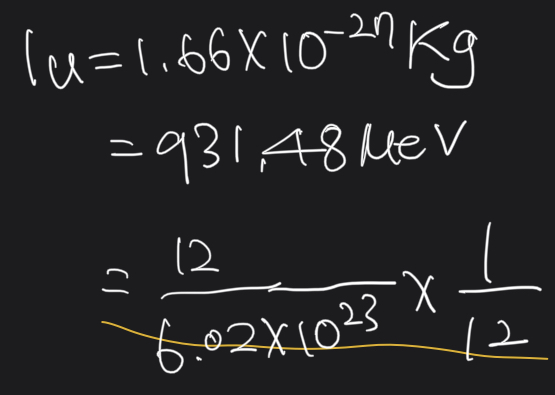 1u=1.66×10⁻²⁷Kg
=931.48MeV
=12/6.02×10²³ × 1/12